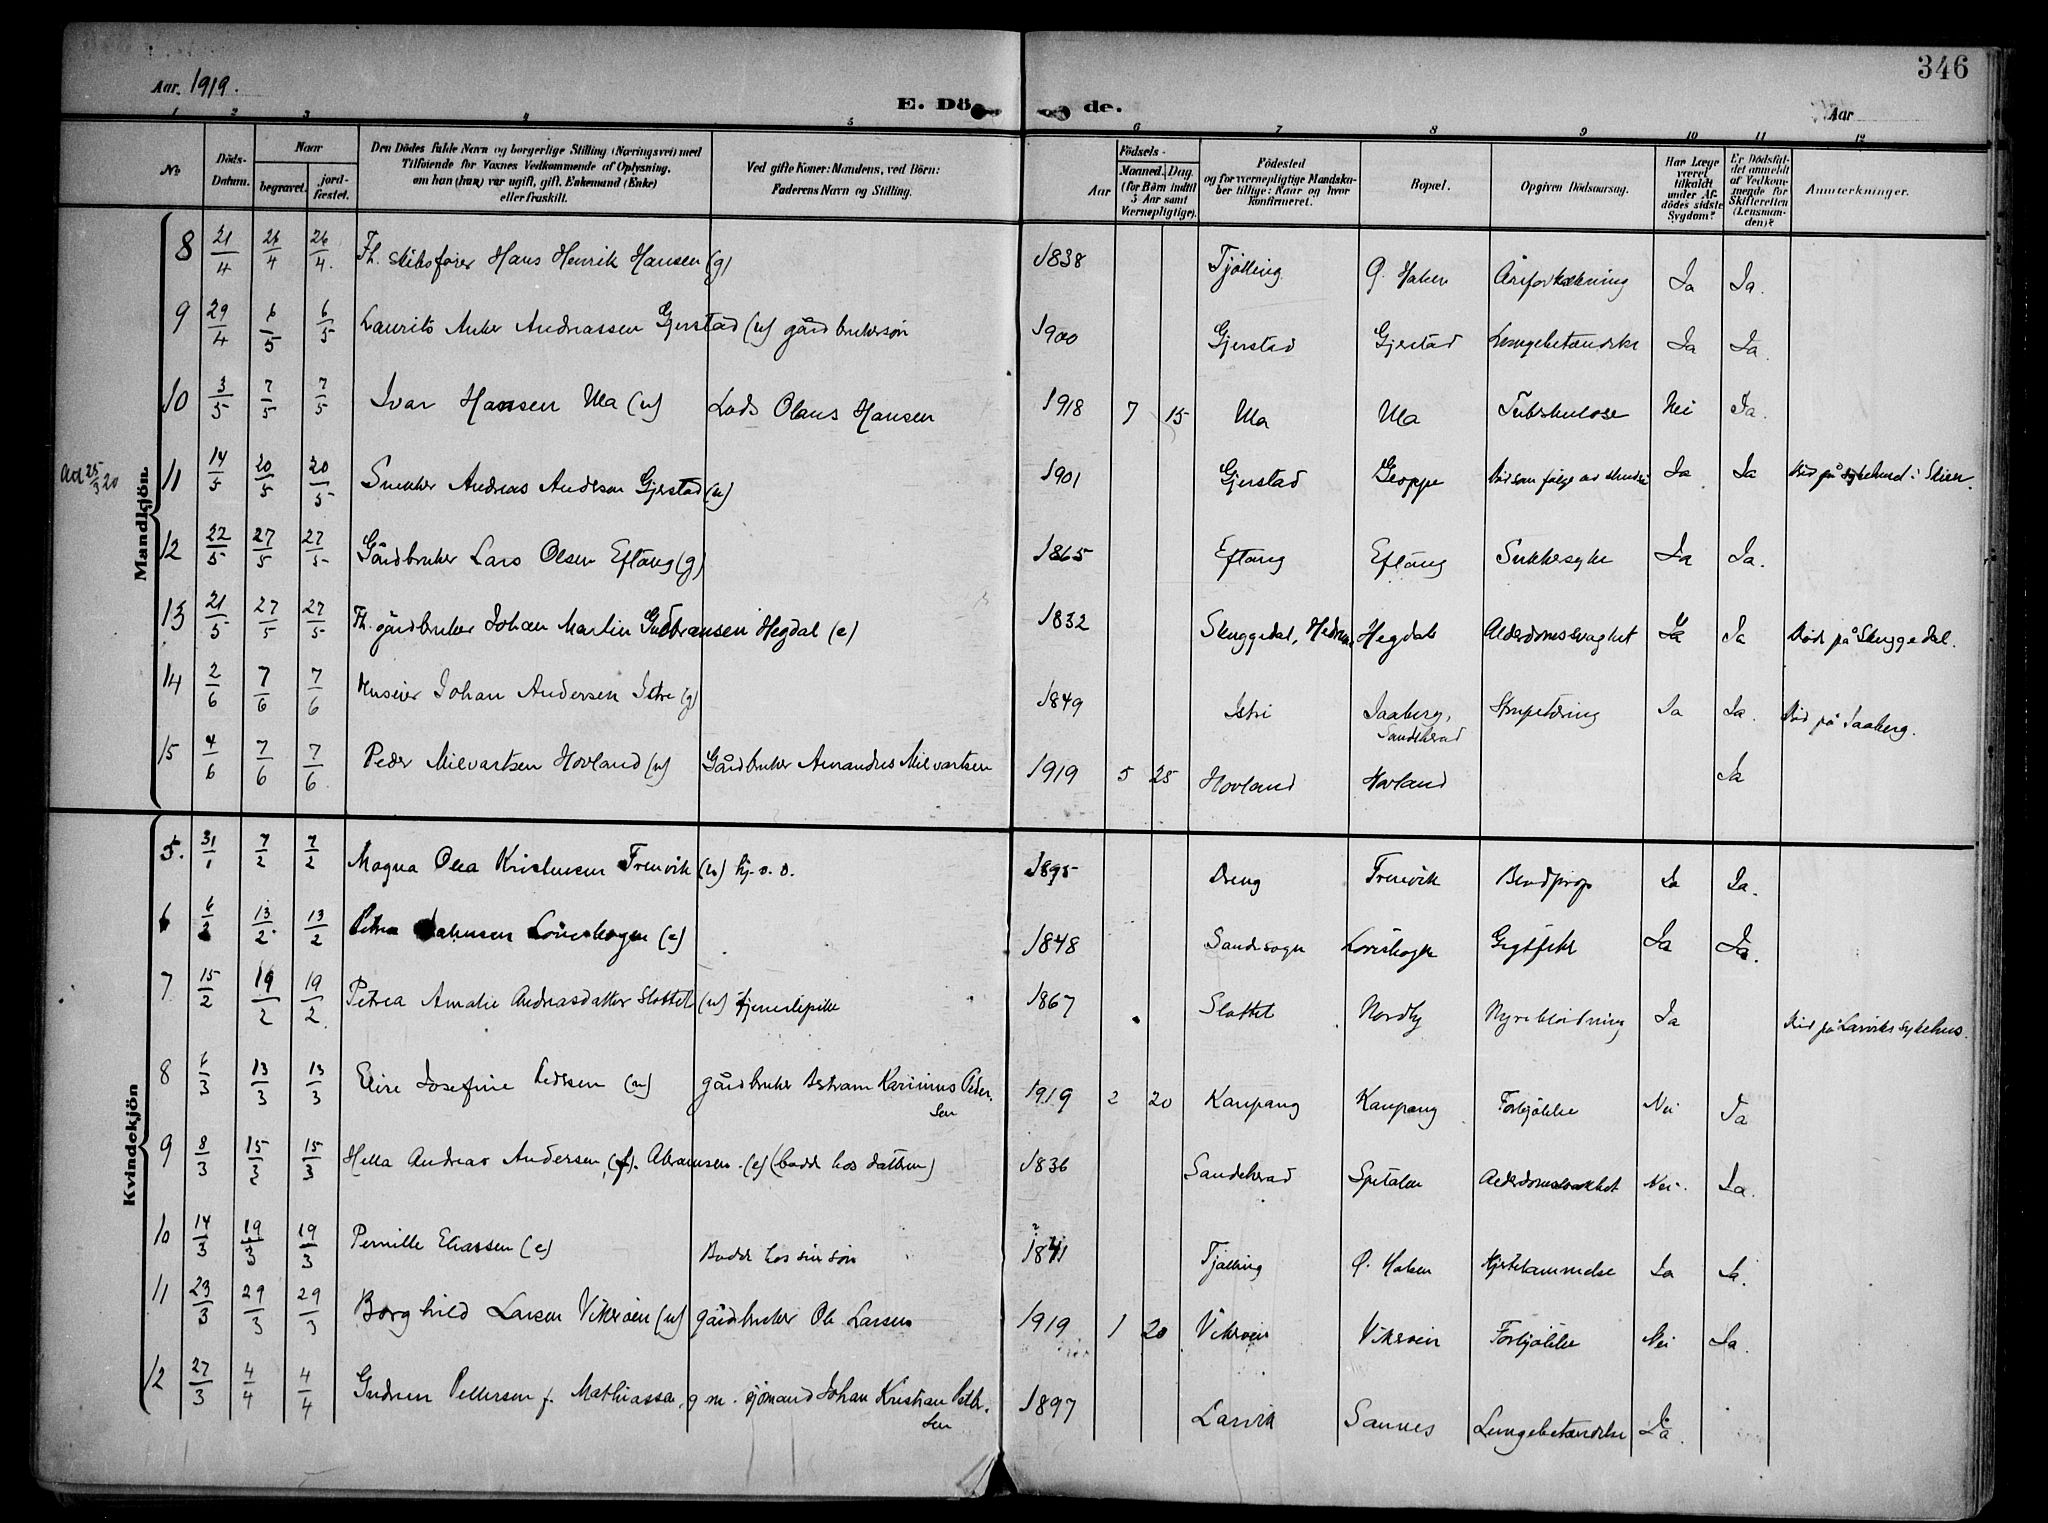 346
Aar 1919.
E. Dö de.
Aar
1 2 3 4 5 6 7 8 9 10 11 12
No.
Döds-Datum.
Naar begravet. jordfæstet.
Den Dödes fulde Navn og borgerlige Stilling (Næringsvei) med Tilföiende for Voxnes Vedkommende af Oplysning, om han (hun) var ugift, gift, Enkemand (Enke) eller fraskilt.
Ved gifte Koner: Mandens, ved Börn: Faderens Navn og Stilling.
Födsels-
Aar
Maaned. Dag.
(for Börn indtil 5 Aar samt Værnepligtige).
Födested og for værnepligtige Mandskaber tillige: Naar og hvor konfirmeret.
Bopæl.
Opgiven Dödsaarsag.
Har Læge været tilkaldt under Afdödes sidste Sygdom?
Er Dödsfaldet anmeldt af Vedkommende for Skifteretten (Lensmanden)?
Anmærkninger.
Mandkjön.
8 21/4 26/4 26/4. Fh. skibsfører Hans Henrik Hansen (g) 1838 Tjølling Ø. Halsen Åreforkalkning Ja Ja.
9 29/4 6/5 6/5 Laurits Anker Andreassen Gjerstad (u) gårdbrukersøn 1900 Gjerstad Gjerstad Lungebetændelse Ja Ja.
10 3/5 7/5 7/5 Ivar Hansen Ula (u) Lods Olaus Hansen 1918 7 15 Ula Ula Tuberkulose Nei Ja.
25/3 20 11 14/5 20/5 20/5 Snekker Andreas Andersen Gjerstad (u) 1901 Gjerstad Død som følge av Ja Ja Død på sykehus i Skien.
12 22/5 27/5 27/5 Gårdbruker Lars Olsen Eftang (g) 1865 Eftang Eftang Sukkersyke Ja Ja.
13 21/5 27/5 27/5 Fh. gårdbruker Johan Martin Gudbransen Hegdal (e) 1832 Skuggedal, Hedrum Hegdal Alderdomssvaghet Ja Ja Død på Skuggedal.
14 2/6 7/6 7/6 Huseier Johan Andersen Istre (g) 1849 Istre Jaaberg, Sandeherad Strupetæring Ja Ja. Død på Jaaberg.
15 4/6 7/6 7/6 Peder Milvartsen Hovland (u) Gårdbruker Amandus Milvartsen 1919 5 25 Hovland Hovland Ja
Kvindekjön
5. 31/1 7/2 7/2 Magna Olea Kristensen Trenvik (u) hj. v. d. 1895 Dreng Trenvik Blodprop Ja Ja.
6 6/2 13/2 13/2 Petra (e) 1848 Sandesogn Gigtfeber Ja Ja.
7 15/2 19/2 19/2 Petrea Amalie Andreasdatter Slottet (u) tjenestepike 1867 Slottet Nordby Nyreblødning Ja Død på Larviks sykehus.
8 6/3 13/3 13/3 Elise Josefine Pedersen (u) gårdbruker Bertram Karinius Pedersen 1919 2 20 Kaupang Kaupang Forkjølelse Nei Ja
9 8/3 15/3 15/3 Hella Andrea Andersen, (f). Abramsen. (e) (bodde hos datteren) 1836 Sandeherad Spitalen Alderdomssvakhet Nei. Ja.
10 14/3 19/3 19/3 Pernille Eliassen (e) Bodde hos sin søn 1841 Tjølling Ø. Halsen Hjertelammelse Ja Ja.
11 23/3 29/3 29/3 Borghild Larsen Vikerøen (u) gårdbruker Ole Larsen 1919 1 20 Vikerøen Vikerøen Forkjølelse Nei Ja.
12 27/3 4/4 4/4 Gudrun Pettersen f. Mathiassen, g m. sjømand Johan Kristian Pettersen 1897 Larvik Sannes Lungebetændelse Ja.